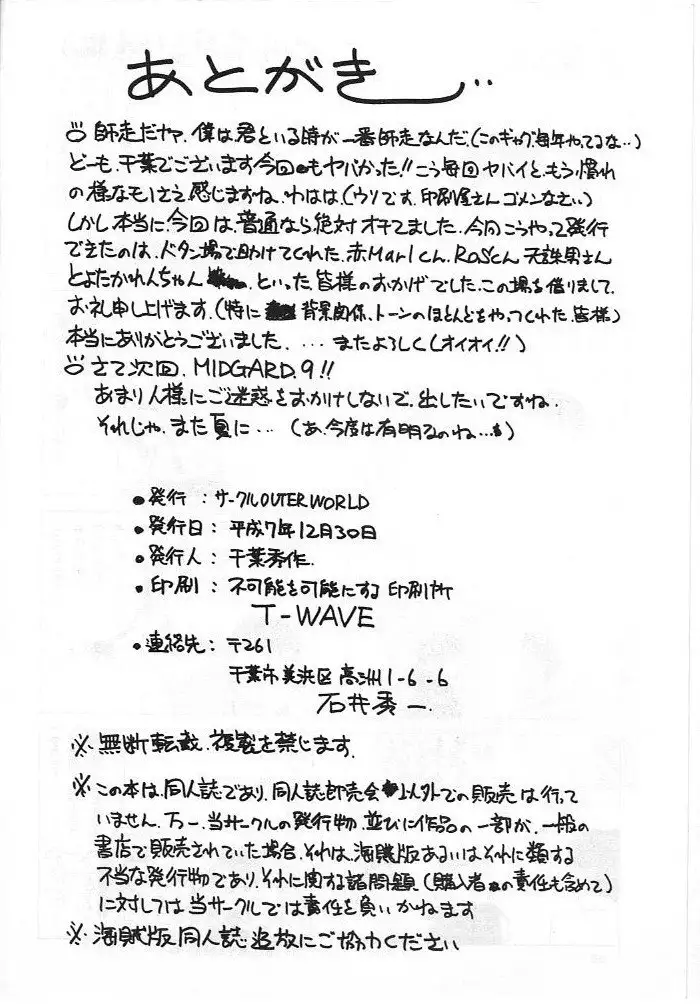 あとがき..
師走だヤァ、僕は君といる時が一番師走なんだ。(このギャグ毎年やってるな..)
どーも、千葉でございます今回もヤバかった!!こう毎回ヤバイと、もう慣れ
の様なモノさえ感じますね。わはは。(ウソです。印刷屋さんゴメンなさい)
しかし本当に今回は、普通なら絶対オチてました。今回こうやって発行
できたのは、ドタン場で助けてくれた、赤Marlくん、RaSくん 天誅男さん
とよたかれんちゃん 、といった皆様のおかげでした。この場を借りまして、
お礼申し上げます。(特に 背景関係、トーンのほとんどをやってくれた、皆様)
本当にありがとうございました。...。またよろしく(オイオイ!!)
さて次回、MIDGARD.9!!
あまり人様にご迷惑をおかけしないで、出したいですね。
それじゃ、また夏に... (あ、今度は有明なのね...)
●発行 : サークルOUTER WORLD
●発行日 : 平成7年12月30日
●発行人 : 千葉秀作.
●印刷 : 不可能を可能にする 印刷所
T-WAVE
●連絡先 : 〒261
千葉市美浜区高洲1-6-6
石井秀一
※無断転載、複製を禁じます。
※この本は、同人誌であり、同人誌即売会以外での販売は行って
いません。万一、当サークルの発行物、並びに作品の一部が、一般の
書店で販売されていた場合、それは、海賊版あるいはそれに類する
不当な発行物であり、それに関する諸問題(購入者の責任も含めて)
に対しては当サークルでは責任を負いかねます
※海賊版同人誌追放にご協力ください